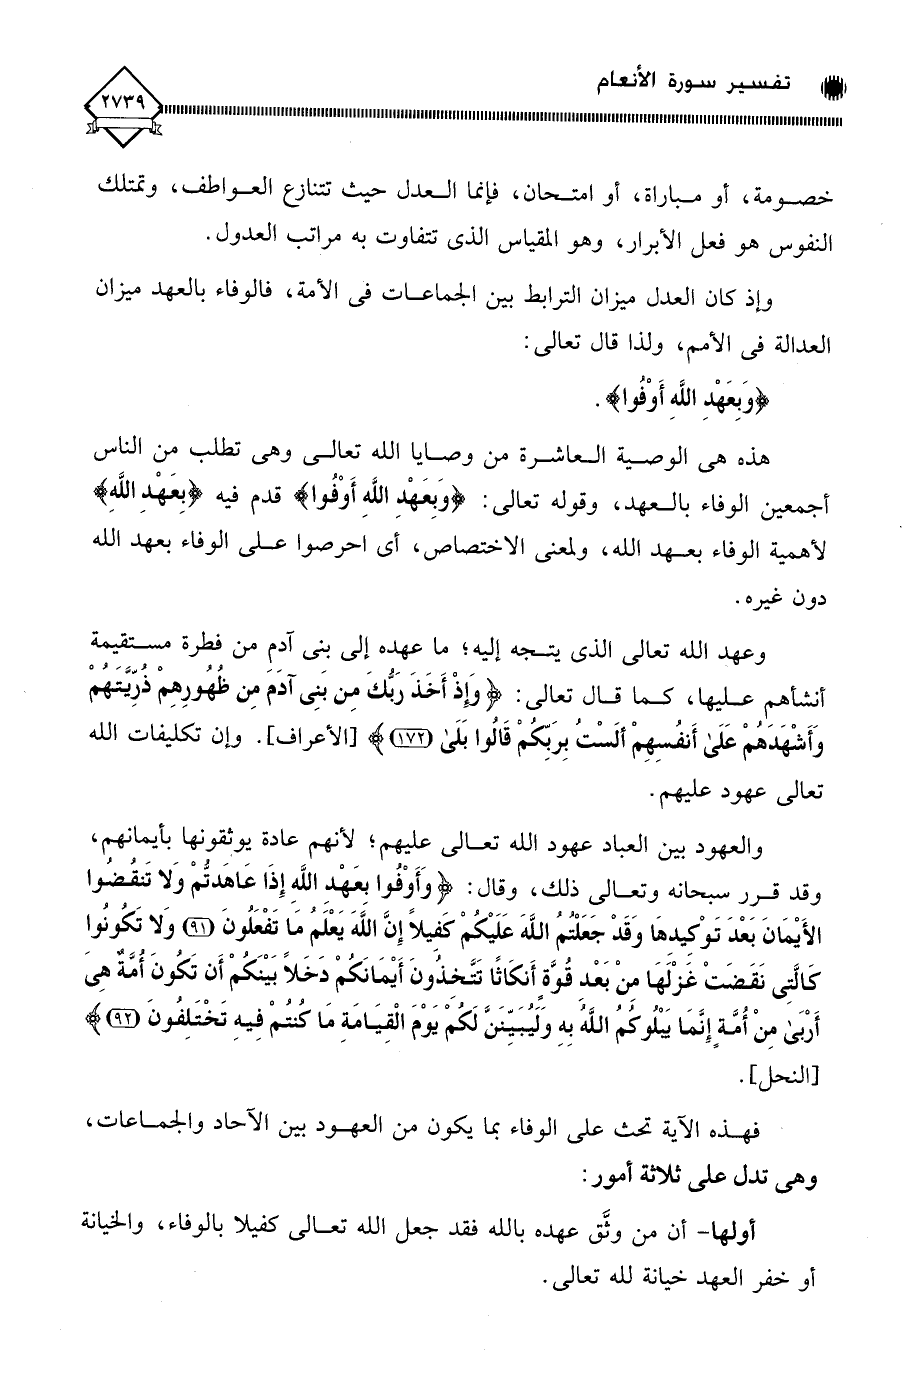 تفسير سورة الأنعام
٢٧٣٩
خصومة، أو مباراة، أو امتحان، فإنما العدل حيث تتنازع العواطف، وتمتلك
النفوس هو فعل الأبرار، وهو المقياس الذى تتفاوت به مراتب العدول.
وإذ كان العدل ميزان الترابط بين الجماعات فى الأمة، فالوفاء بالعهد ميزان
العدالة فى الأمم، ولذا قال تعالى:
﴿وَبِعَهْدِ اللَّهِ أَوْفُوا﴾.
هذه هى الوصية العاشرة من وصايا الله تعالى وهى تطلب من الناس
أجمعين الوفاء بالعهد، وقوله تعالى: ﴿وَبِعَهْدِ اللَّهِ أَوْفُوا﴾ قدم فيه ﴿بِعَهْدِ اللَّهِ﴾
لأهمية الوفاء بعهد الله، ولمعنى الاختصاص، أى احرصوا على الوفاء بعهد الله
دون غيره.
وعهد الله تعالى الذى يتجه إليه؛ ما عهده إلى بنى آدم من فطرة مستقيمة
أنشأهم عليها، كما قال تعالى: ﴿وَإِذْ أَخَذَ رَبُّكَ مِن بَنِي آدَمَ مِن ظُهُورِهِمْ ذُرِّيَّتَهُمْ
وَأَشْهَدَهُمْ عَلَىٰ أَنفُسِهِمْ أَلَسْتُ بِرَبِّكُمْ قَالُوا بَلَىٰ (١٧٢)﴾ [الأعراف]. وإن تكليفات الله
تعالى عهود عليهم.
والعهود بين العباد عهود الله تعالى عليهم؛ لأنهم عادة يوثقونها بأيمانهم،
وقد قرر سبحانه وتعالى ذلك، وقال: ﴿وَأَوْفُوا بِعَهْدِ اللَّهِ إِذَا عَاهَدتُّمْ وَلا تَنقُضُوا
الأَيْمَانَ بَعْدَ تَوْكِيدِهَا وَقَدْ جَعَلْتُمُ اللَّهَ عَلَيْكُمْ كَفِيلاً إِنَّ اللَّهَ يَعْلَمُ مَا تَفْعَلُونَ (٩١) وَلا تَكُونُوا
كَالَّتِي نَقَضَتْ غَزْلَهَا مِنْ بَعْدِ قُوَّةٍ أَنكَاثًا تَتَّخِذُونَ أَيْمَانَكُمْ دَخَلاً بَيْنَكُمْ أَن تَكُونَ أُمَّةٌ هِيَ
أَرْبَىٰ مِنْ أُمَّةٍ إِنَّمَا يَبْلُوكُمُ اللَّهُ بِهِ وَلَيُبَيِّنَنَّ لَكُمْ يَوْمَ الْقِيَامَةِ مَا كُنتُمْ فِيهِ تَخْتَلِفُونَ (٩٢)﴾
[النحل].
فهذه الآية تحث على الوفاء بما يكون من العهود بين الآحاد والجماعات،
وهى تدل على ثلاثة أمور:
أولها- أن من وثَّق عهده بالله فقد جعل الله تعالى كفيلا بالوفاء، والخيانة
أو خفر العهد خيانة لله تعالى.